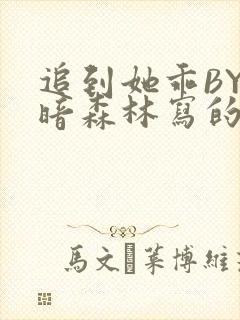 追到她乖BY
暗森林寫的
馬文 莱博維